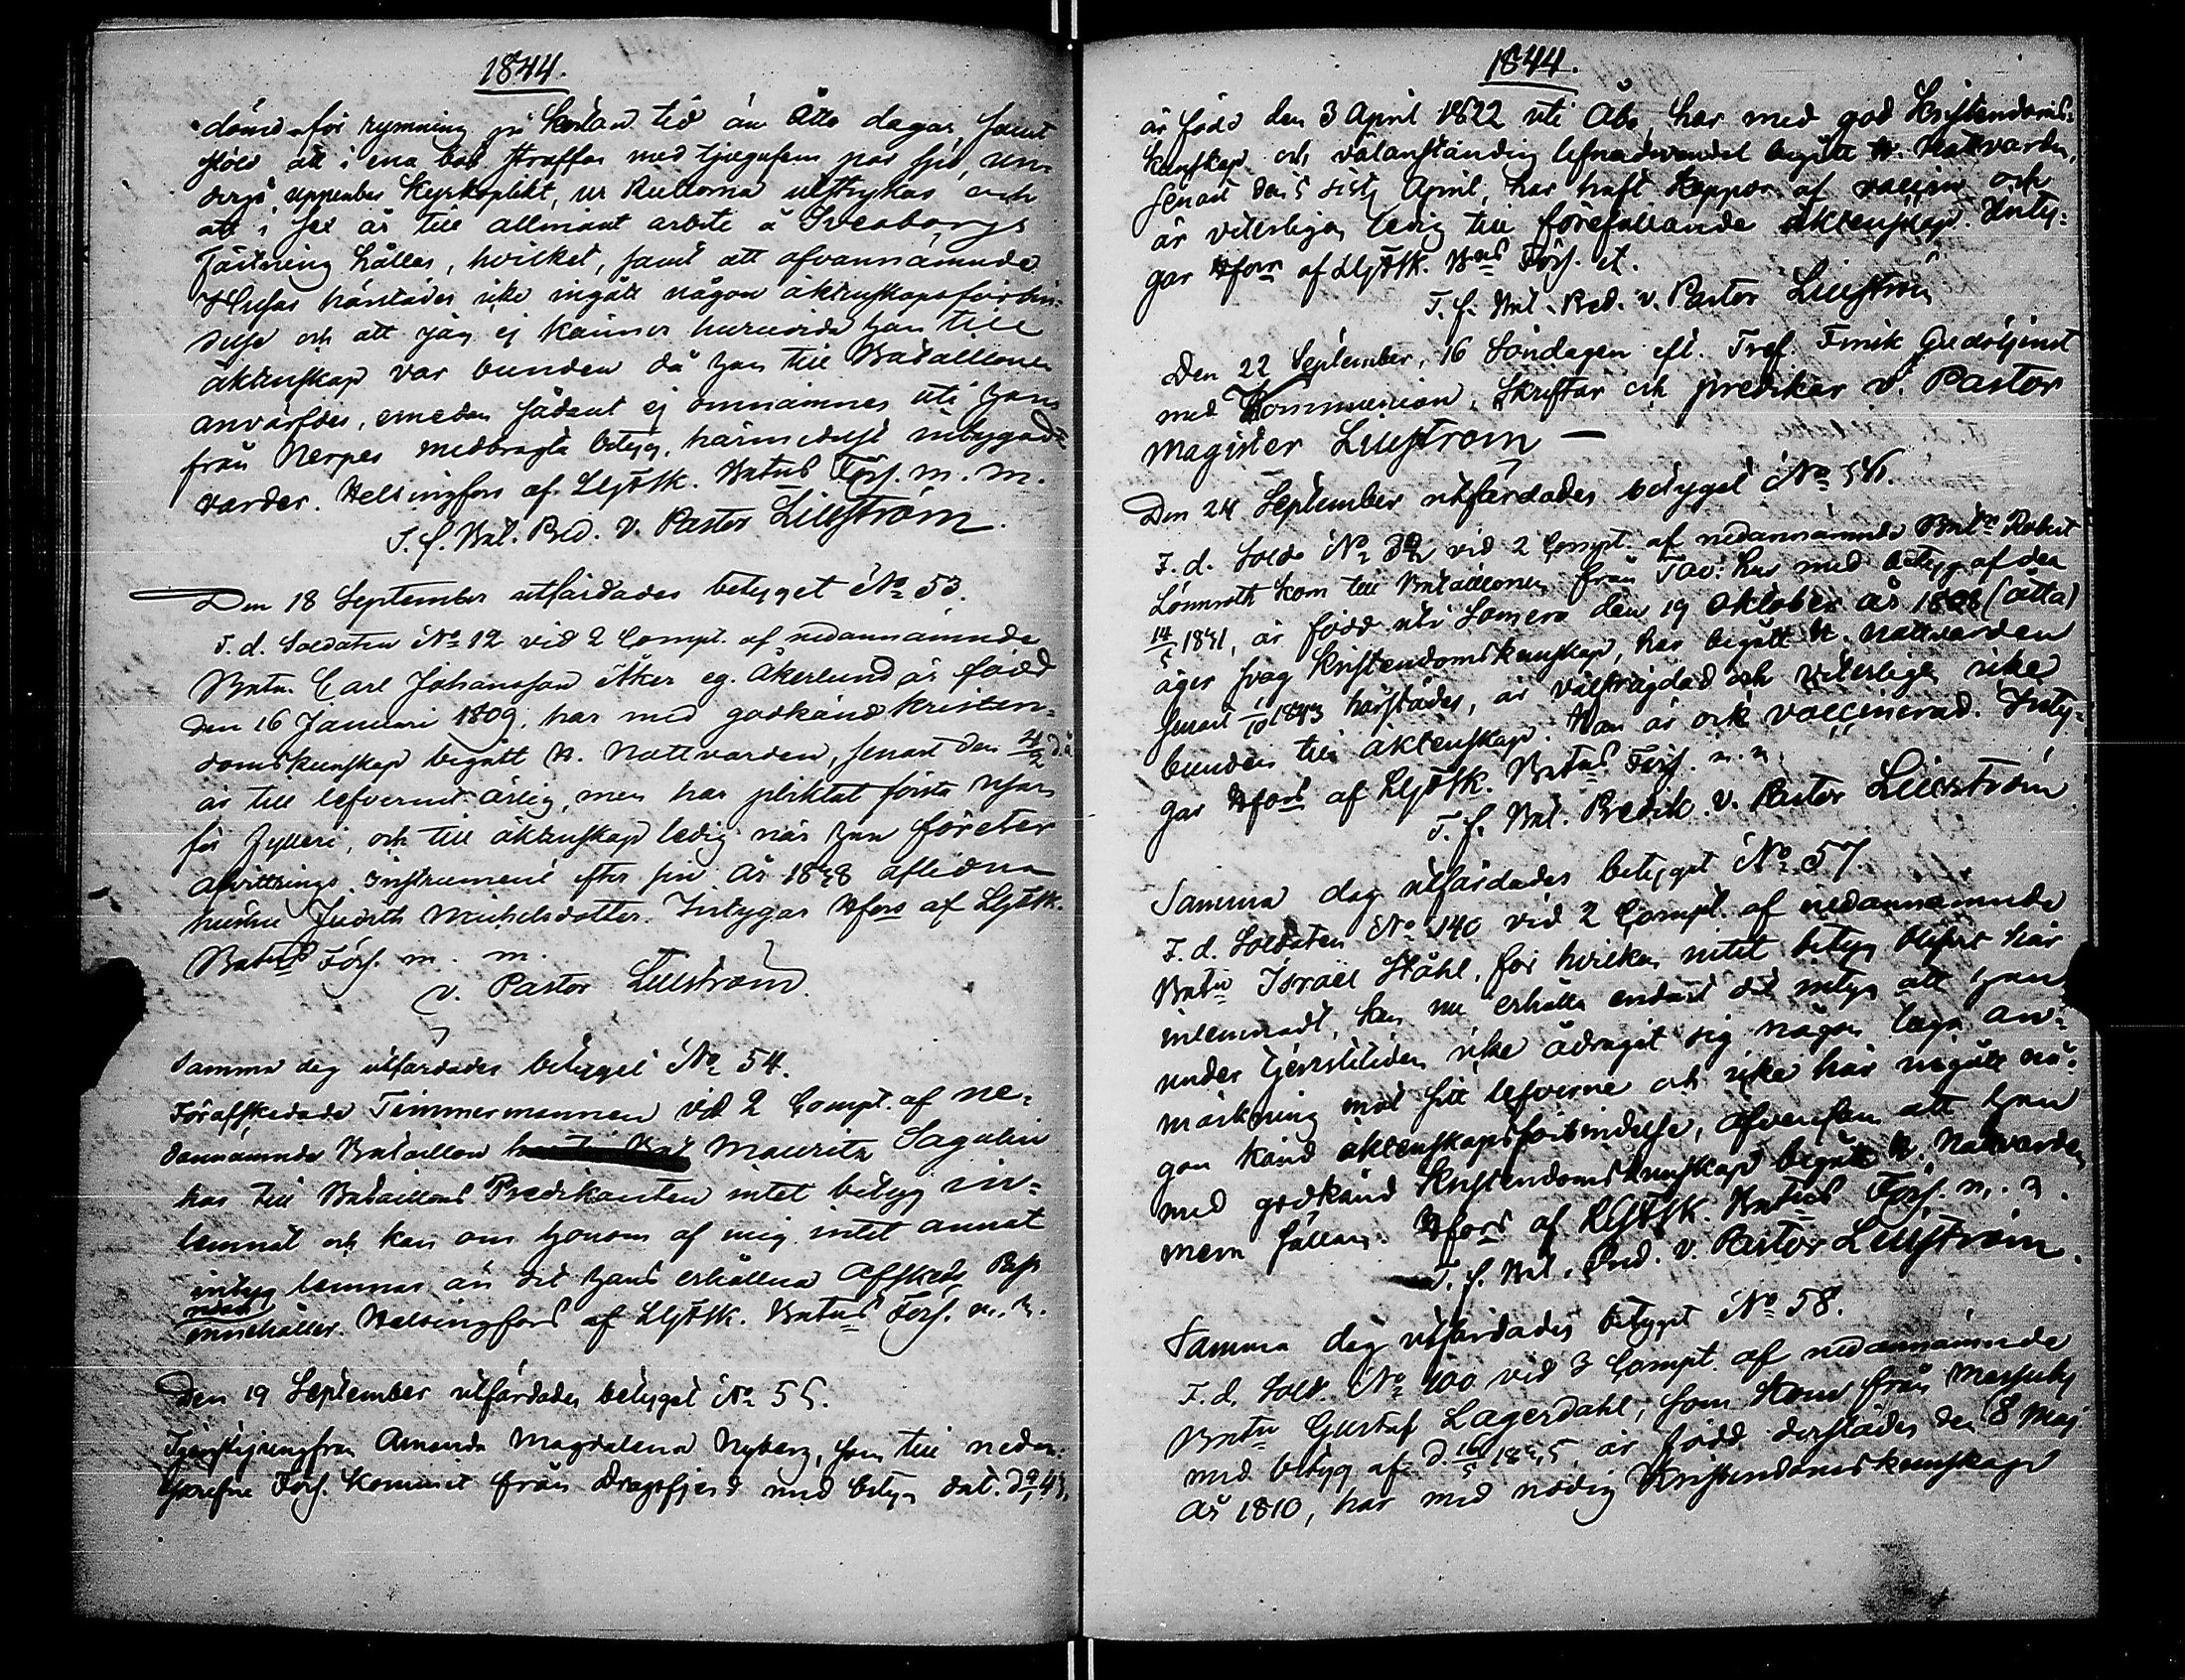 1844.
dömd för rymning på kortare tid än åtta dagar, samt
stöld att i ena bot straffas med tjugufem par spö, un-
dergå uppenbar Kyrkoplikt, ur Rullorna utstrykas och
att i sex år till allmänt arbete å Sveaborgs
Fästning hållas, hvilket, samt att ofvannämnde
härstädes icke ingått någon äktenskapsförbin-
delse och att jag ej känner huruvida han till
äktenskap var bunden då han till Bataillonen
anvärfdes, emedan sådant ej omnämnes uti hans
från Nerpes medbragta betyg, härmedelst intygadt
varder. Helsingfors af LljFSk. Batns Förs. m. m.
T. f. Bat. Pred. v. Pastor Lillström.
Den 18 September utfärdades betyget No 53.
F. d. Soldaten No 12 vid 2 Comp. af nedannämnde
Batn. Carl Johansson Åker eg. Åkerlund är född
den 16 Januari 1809, har med godkänd kristen-
domskunskap begått H. Nattvarden, senast den
är till lefvernet ärlig, men har pliktat första resan
för fylleri, och till äktenskap ledig när han företer
afvittrings Instrument efter sin år 1838 aflidna
hustru Judith Michelsdotter. Intygar Hfors af LljFSk.
Batns Förs. m. m.
v. Pastor Lillström.
Samma dag utfärdades betyget No 54.
Förafskedade Timmermannen vid 2 Comp. af ne-
dannämnde Bataillon Mauritz Sagulin
har till Bataillons Predikanten intet betyg in-
lemnat och kan om honom af mig intet annat
intyg lemnas än det hans erhållna Afskeds Pass
innehåller. Helsingfors af LljFSk. Batns Förs. m. m.
Den 19 September utfärdades betyget No 55.
Tjenstejungfrun Amanda Magdalena Nyberg, som till nedan-
skrefne Förs. kommit från Dragsfjerd med betyg dat.
1844.
är född den 3 April 1822 uti Åbo, har med god Kristendoms-
kunskap och välanständig lefnadsvandel begått H. Nattvarden,
senast den 5 sistl. April, har haft koppor af vaccin och
är veterligen ledig till förefallande äktenskap. Inty-
gar Hfors af LljFSk. Btns Förs. et.
T. f. Bat. Pred. v. Pastor Lillström
Den 22 September, 16 Söndagen eft. Tref. Finsk Gudstjenst
med Kommunion, Skriftar och predikar v. Pastor
Magister Lillström —
Den 24 September utfärdades betyget No 56.
F. d. Sold. No 32 vid 2 Comp. af nedannämnde Batn Robert
Lönnroth kom till Bataillonen från med betyg af den
14/5 1831, är född uti Somero den 19 Oktober år 1808 (åtta)
äger svag Kristendomskunskap, har begått H. Nattvarden
senast 1843 härstädes, är välfrägdad och veterligen icke
bunden till äktenskap. Han är ock vaccinerad. Inty-
gar Hfors af LljFSk. Batns Förs. m. m.
T. f. Bat. Predik. v. Pastor Lillström
Samma dag utfärdades betyget No 57.
F. d. Soldaten No 140 vid 2 Comp. af nedannämnde
Batn Israel Ståhl, för hvilken intet betyg blifvit här
inlemnadt, kan nu erhålla endast det intyg att han
under tjenstetiden icke ådragit sig någon laga an-
märkning mot sitt lefverne och icke här ingått nå-
gon känd äktenskapsförbindelse, äfvensom att han
med godkänd Kristendomskunskap begått H. Nattvarden
mern sällan. Hfors af LljFSk. Batns Förs. m. m.
T. f. Bat. Pred. v. Pastor Lillström.
Samma dag utfärdades betyget No 58.
F. d. Sold. No 100 vid 3 Comp. af nedannämnde
Batn Gustaf Lagerdahl, som kom från Messuby
med betyg af d. 16/5 1835, är född derstädes den 8 Maj
År 1810, har med nödig Kristendomskunskap